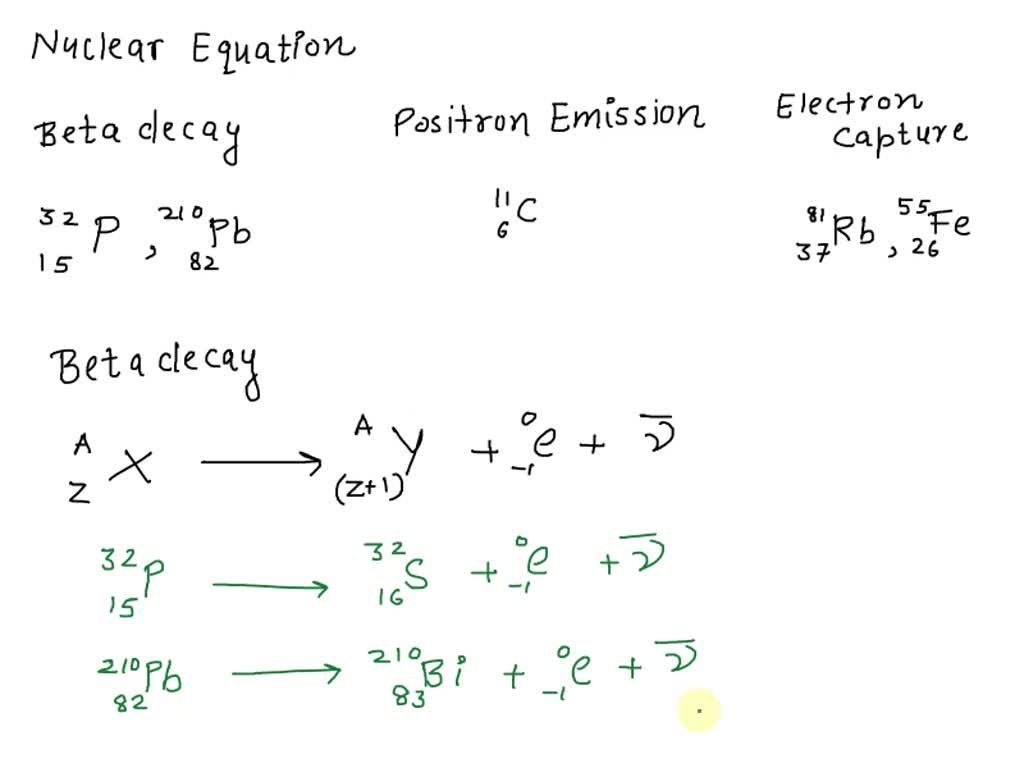 Nuclear Equation
Beta decay Positron Emission Electron Capture
³²₁₅P, ²¹⁰₈₂Pb ¹¹₆C ⁸¹₃₇Rb, ⁵⁵₂₆Fe
Beta decay
ᴬ_Z X ⟶ ᴬ_(Z+1) Y + ⁰₋₁e + ν̅
³²₁₅P ⟶ ³²₁₆S + ⁰₋₁e + ν̅
²¹⁰₈₂Pb ⟶ ²¹⁰₈₃Bi + ⁰₋₁e + ν̅